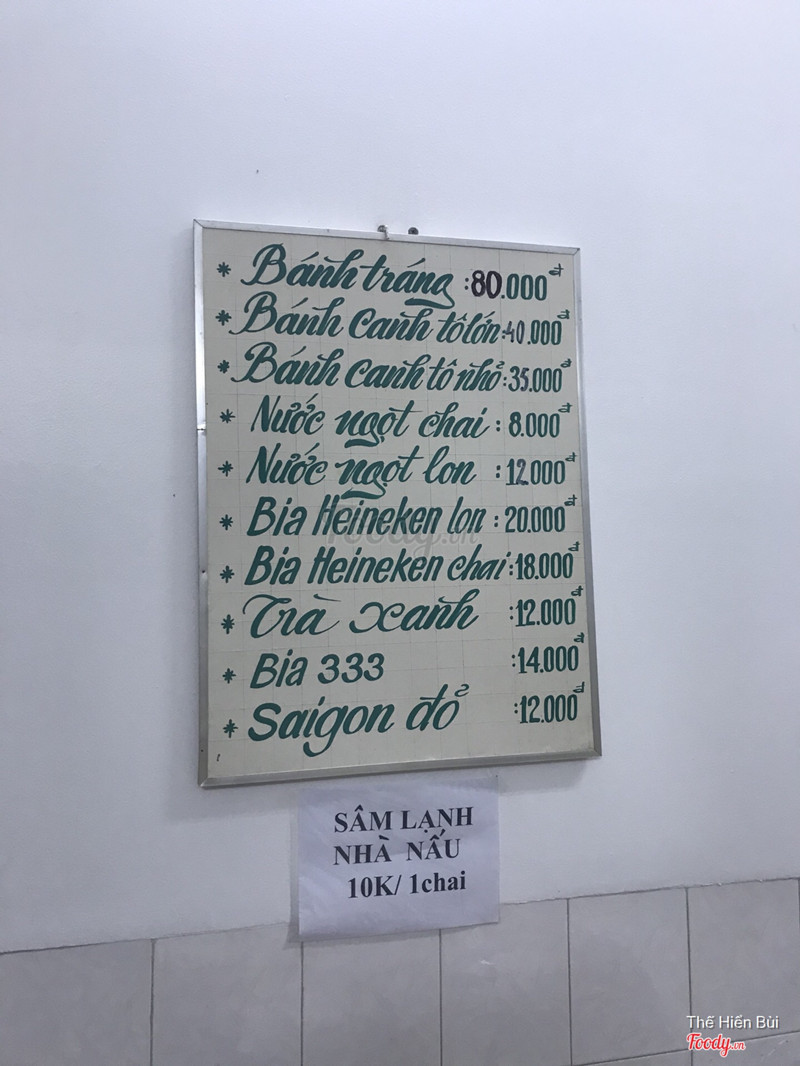 * Bánh tráng :80.000đ
* Bánh canh tô lớn:40.000đ
* Bánh canh tô nhỏ:35.000đ
* Nước ngọt chai : 8.000đ
* Nước ngọt lon : 12.000đ
* Bia Heineken lon : 20.000đ
* Bia Heineken chai:18.000đ
* Trà xanh :12.000đ
* Bia 333 :14.000đ
* Saigon đỏ :12.000đ
Foody.vn
SÂM LẠNH
NHÀ NẤU
10K/ 1chai
Thế Hiển Bùi
Foody.vn